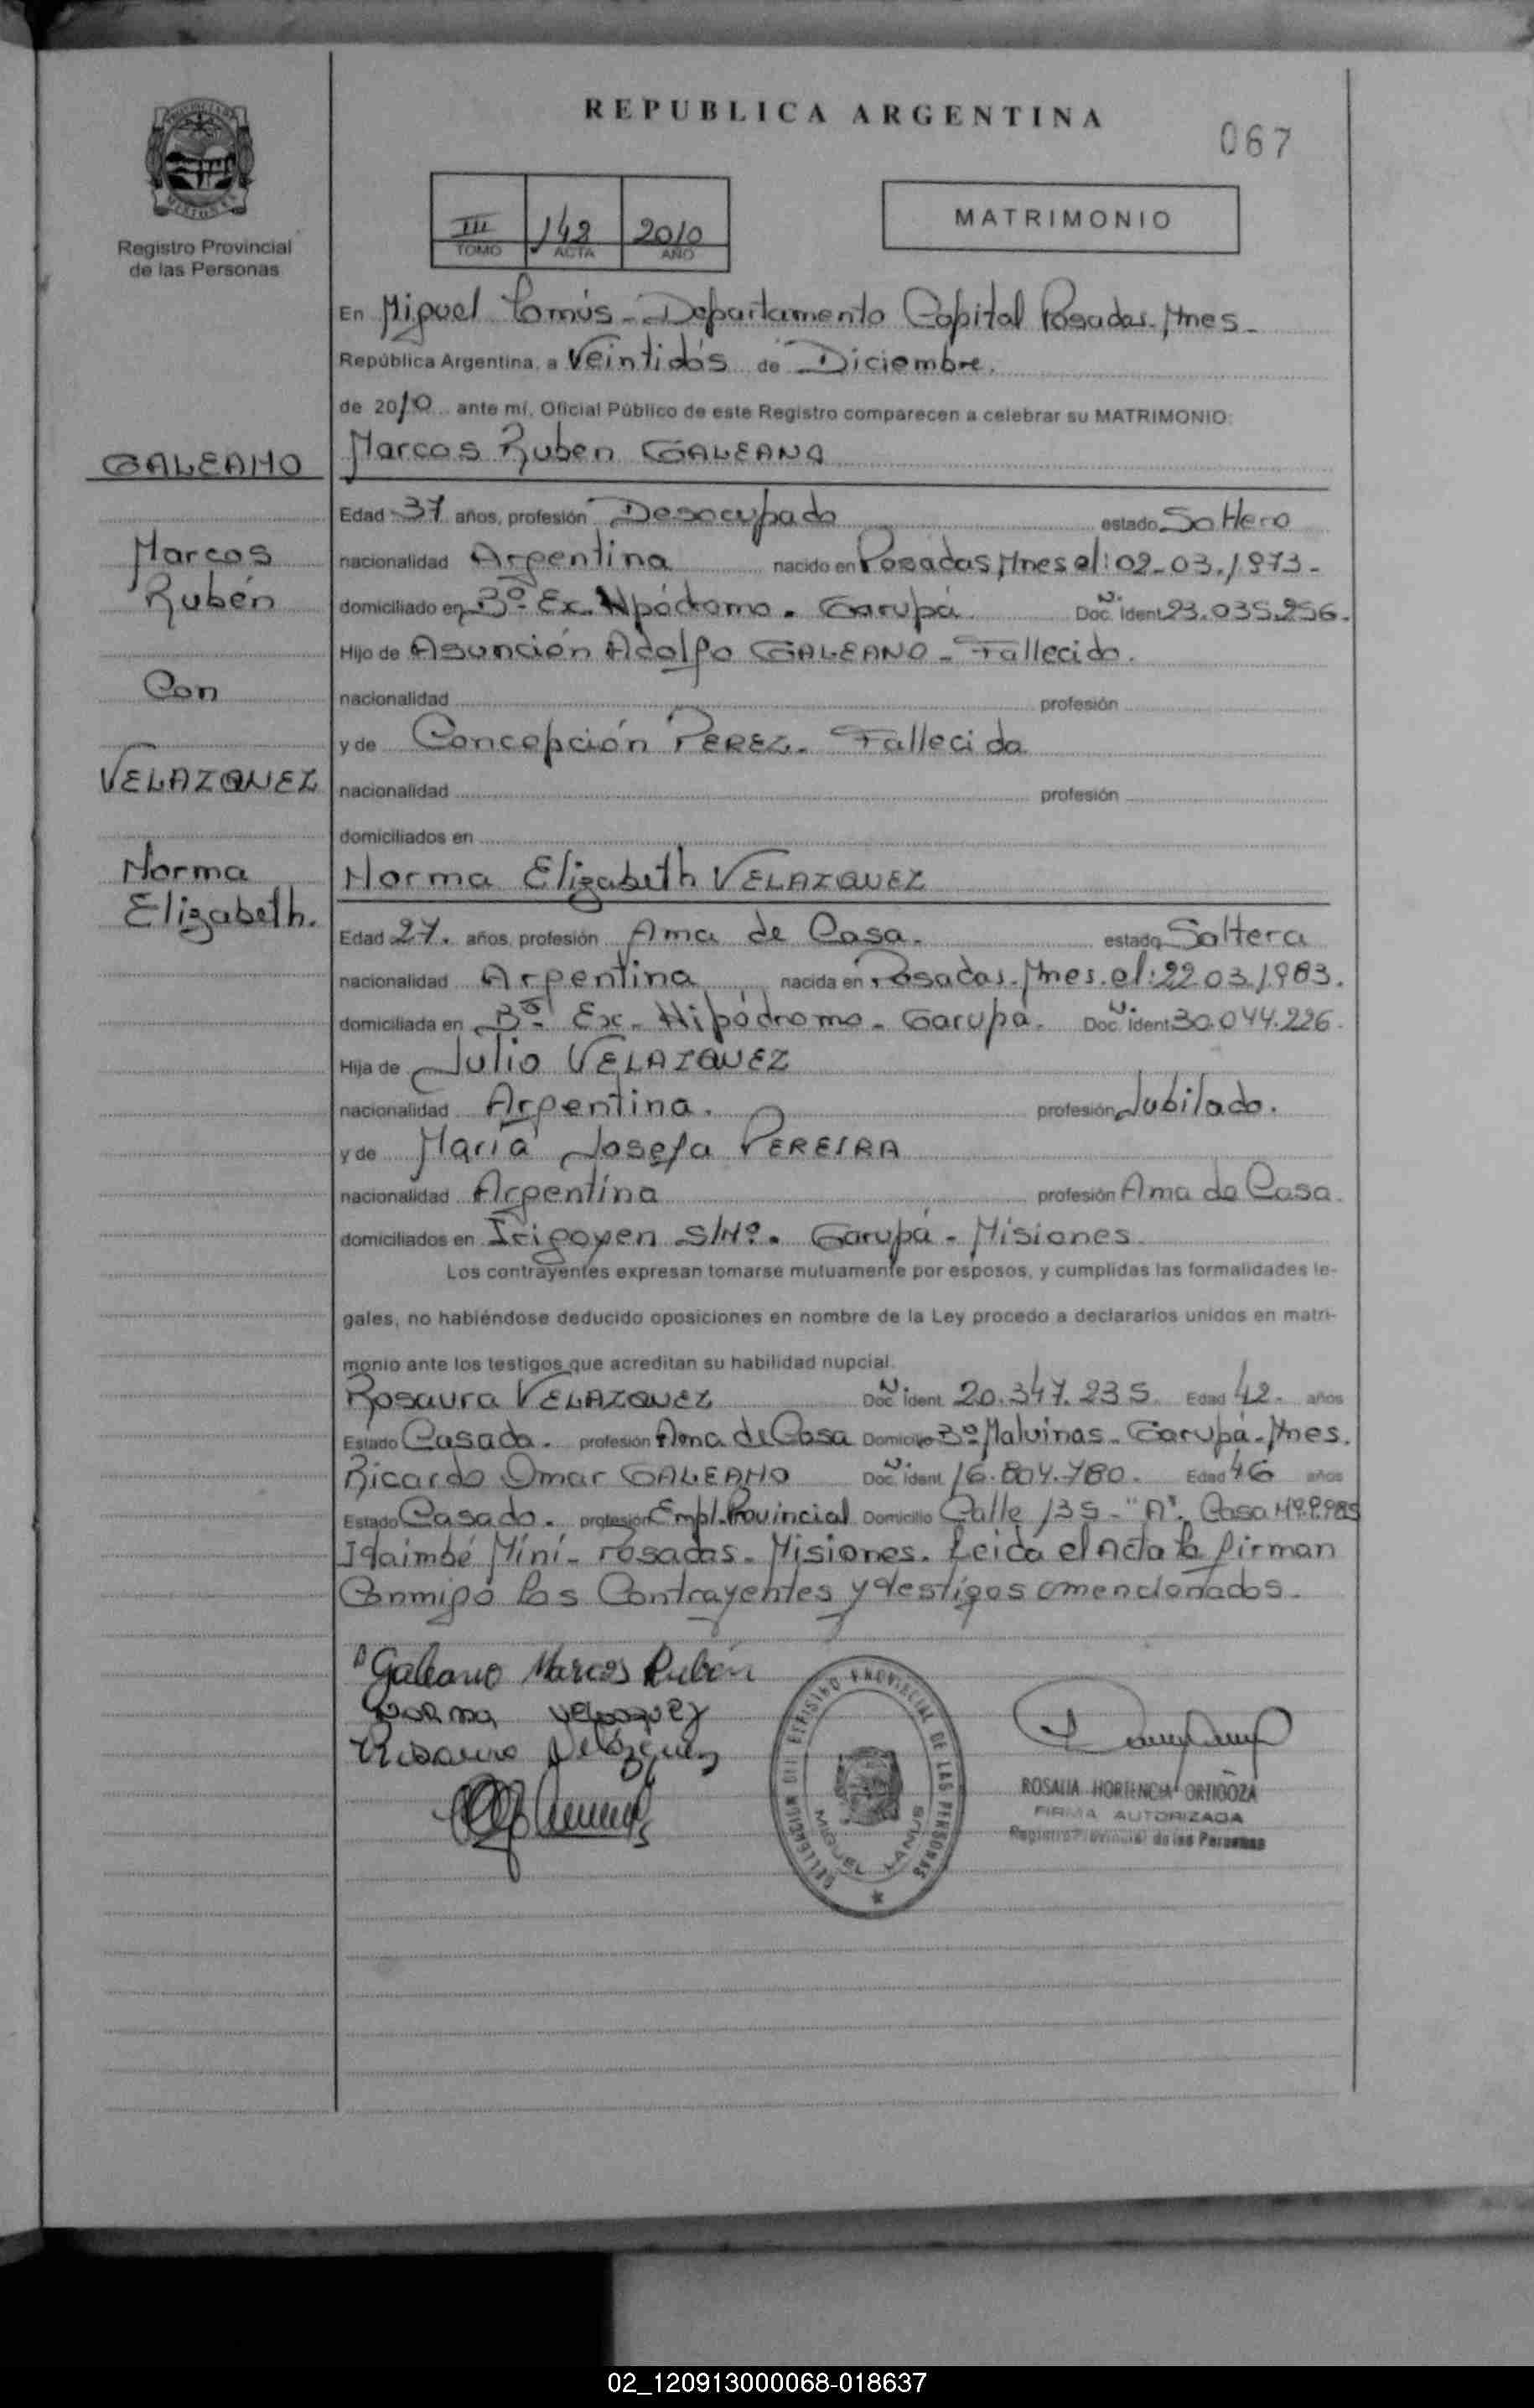 REPUBLICA ARGENTINA
067
PROVINCIA DE MISIONES
Registro Provincial
de las Personas
III 142 2010
TOMO ACTA AÑO
MATRIMONIO
En Miguel Lanús - Departamento Capital Posadas - Mnes -
República Argentina, a Veintidós de Diciembre.
de 2010 ante mí, Oficial Público de este Registro comparecen a celebrar su MATRIMONIO:
GALEANO
Marcos
Rubén
Con
VELAZQUEZ
Norma
Elizabeth.
Marcos Ruben GALEANO
Edad 37 años, profesión Desocupado estado Soltero
nacionalidad Argentina nacido en Posadas, Mnes el: 02-03-1973-
domiciliado en Bº- Ex. Hipódromo. Garupá Doc. Ident. Nº 23.035.256.
Hijo de Asunción Adolfo GALEANO - Fallecido.
nacionalidad profesión
y de Concepción PEREZ - Fallecida
nacionalidad profesión
domiciliados en
Norma Elizabeth VELAZQUEZ
Edad 27. años, profesión Ama de Casa. estado Soltera
nacionalidad Argentina nacida en Posadas - Mnes. el: 22.03.1983.
domiciliada en Bº- Ex- Hipódromo - Garupá. Doc. Ident. Nº 30.044.226.
Hija de Julio VELAZQUEZ
nacionalidad Argentina. profesión Jubilado.
y de María Josefa PEREIRA
nacionalidad Argentina profesión Ama de Casa.
domiciliados en Irigoyen S/Nº. Garupá - Misiones.
Los contrayentes expresan tomarse mutuamente por esposos, y cumplidas las formalidades le-
gales, no habiéndose deducido oposiciones en nombre de la Ley procedo a declararlos unidos en matri-
monio ante los testigos que acreditan su habilidad nupcial.
Rosaura VELAZQUEZ Doc. Ident. Nº 20.347.235. Edad 42. años
Estado Casada. profesión Ama de Casa Domicilio Bº Malvinas - Garupá - Mnes.
Ricardo Omar GALEANO Doc. Ident. Nº 16.804.780. Edad 46 años
Estado Casado. profesión Empl. Provincial Domicilio Calle 135 - "A". Casa Nº
Itaimbé Miní - Posadas - Misiones. Leida el Acta la firman
Conmigo los Contrayentes y testigos mencionados.
Galeano Marcos Rubén
NORMA VELAZQUEZ
Rosaura Velázquez
REGISTRO PROVINCIAL DE LAS PERSONAS
MIGUEL LANUS
ROSALIA HORTENCIA ORTIGOZA
FIRMA AUTORIZADA
Registro Provincial de las Personas
02_120913000068-018637